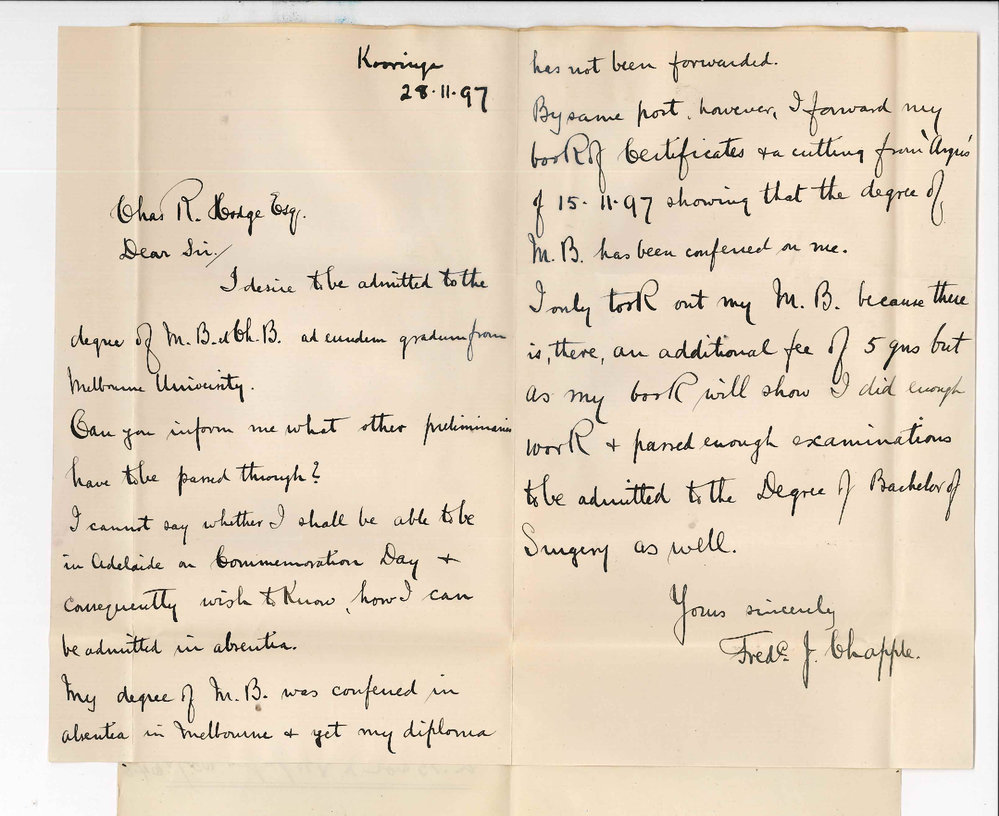 Kooringa
28·11·97
Chas R. Hodge Esq.
Dear Sir/
I desire to be admitted to the
degree of M.B. et Ch.B. ad eundem gradum from
Melbourne University.
Can you inform me what other preliminaries
have to be passed through?
I cannot say whether I shall be able to be
in Adelaide on Commemoration Day +
consequently wish to know, how I can
be admitted in absentia.
My degree of M.B. was conferred in
absentia in Melbourne + yet my diploma
has not been forwarded.
By same post, however, I forward my
book of Certificates + a cutting from 'Argus'
of 15·11·97 showing that the degree of
M.B. has been conferred on me.
I only took out my M.B. because there
is, there, an additional fee of 5 gns but
as my book will show I did enough
work + passed enough examinations
to be admitted to the Degree of Bachelor of
Surgery as well.
Yours sincerely
Fredc. J. Chapple.